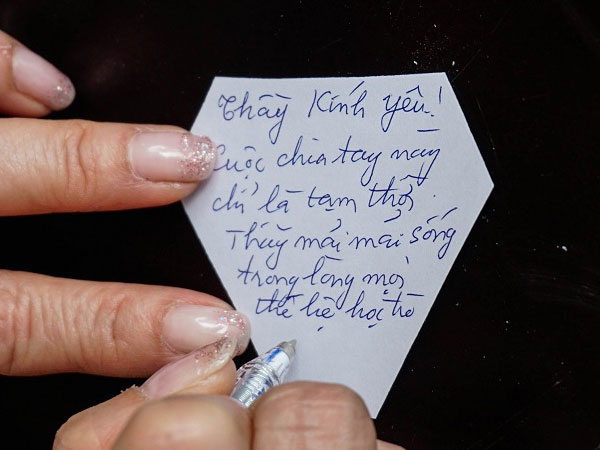 Thầy kính yêu!
Cuộc chia tay này
chỉ là tạm thời.
Thầy mãi mãi sống
trong lòng mọi
thế hệ học trò